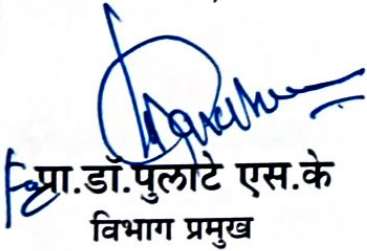 For प्रा.डॉ.पुलाटे एस.के
विभाग प्रमुख